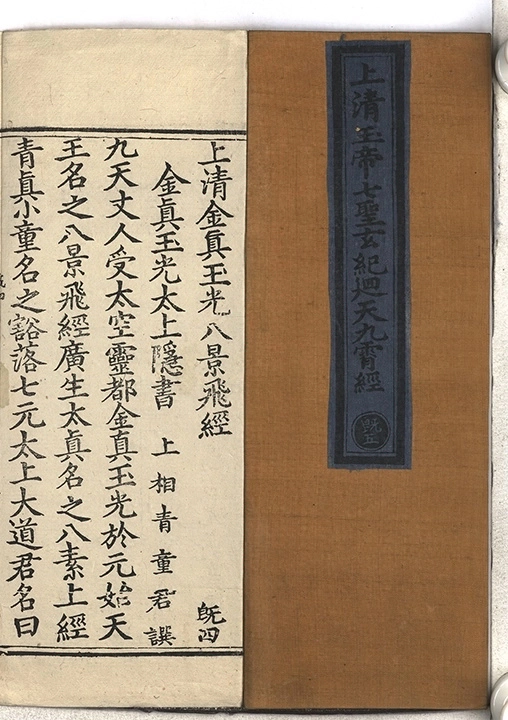 上清玉帝七聖玄紀迴天九霄經
旣五
上清金真玉光八景飛經
旣四
金真玉光太上隱書 上相青童君譔
九天丈人受太空靈都金真玉光於元始天
王名之八景飛經廣生太真名之八素上經
青真小童名之豁落七元太上大道君名曰